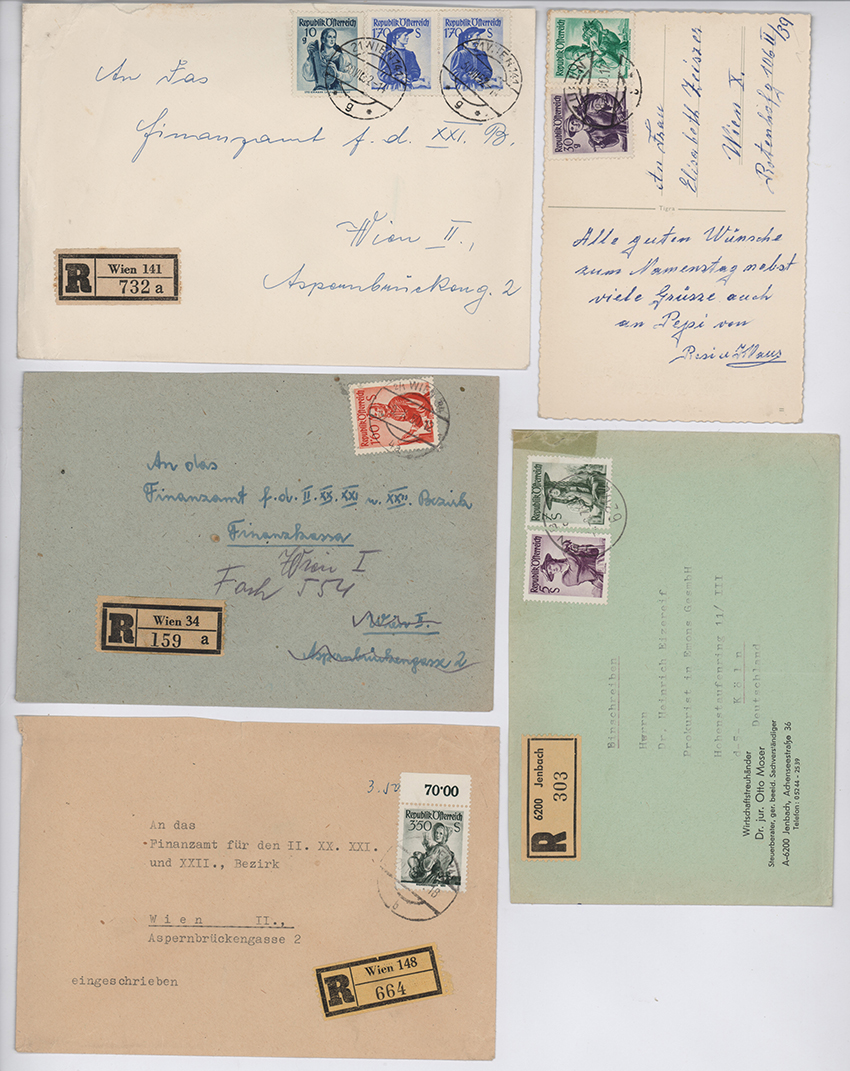 Republik Österreich
10
g
Republik Österreich
170 S
Republik Österreich
170 S
21 WIEN 141
g
21 WIEN 141
g
An Das
Finanzamt f. d. XXI. B.
Wien II.,
Aspernbrückeng. 2
R
Wien 141
732 a
Republik Österreich
Republik Österreich
30
g
An Frau
Elisabeth Zeiszer
Wien X.
Rotenhofg 106 II/39
Tigra
Alle guten Wünsche
zum Namenstag nebst
viele Grüsse auch
an Pepi von
Resi u Klaus
Republik Österreich
1.60
S
WIEN
An das
Finanzamt f. d. II. XX. XXI u. XXII. Bezirk
Finanzkassa
Wien I
Fach 554
Wien II.
Aspernbrückengasse 2
R
Wien 34
159 a
Republik Österreich
2
S
Republik Österreich
5
S
Einschreiben
Herrn
Dr. Heinrich Eizereif
Prokurist in Emons GesmbH
Hohenstaufenring 11/ III
d-5. K ö l n
Deutschland
R
6200 Jenbach
303
Wirtschaftstreuhänder
Dr. jur. Otto Moser
Steuerberater, ger. beeid. Sachverständiger
A-6200 Jenbach, Achenseestraße 36
Telefon: 05244 - 2539
3.50
70.00
Republik Österreich
350
S
An das
Finanzamt für den II. XX. XXI.
und XXII., Bezirk
W i e n II.,
Aspernbrückengasse 2
eingeschrieben
R
Wien 148
664